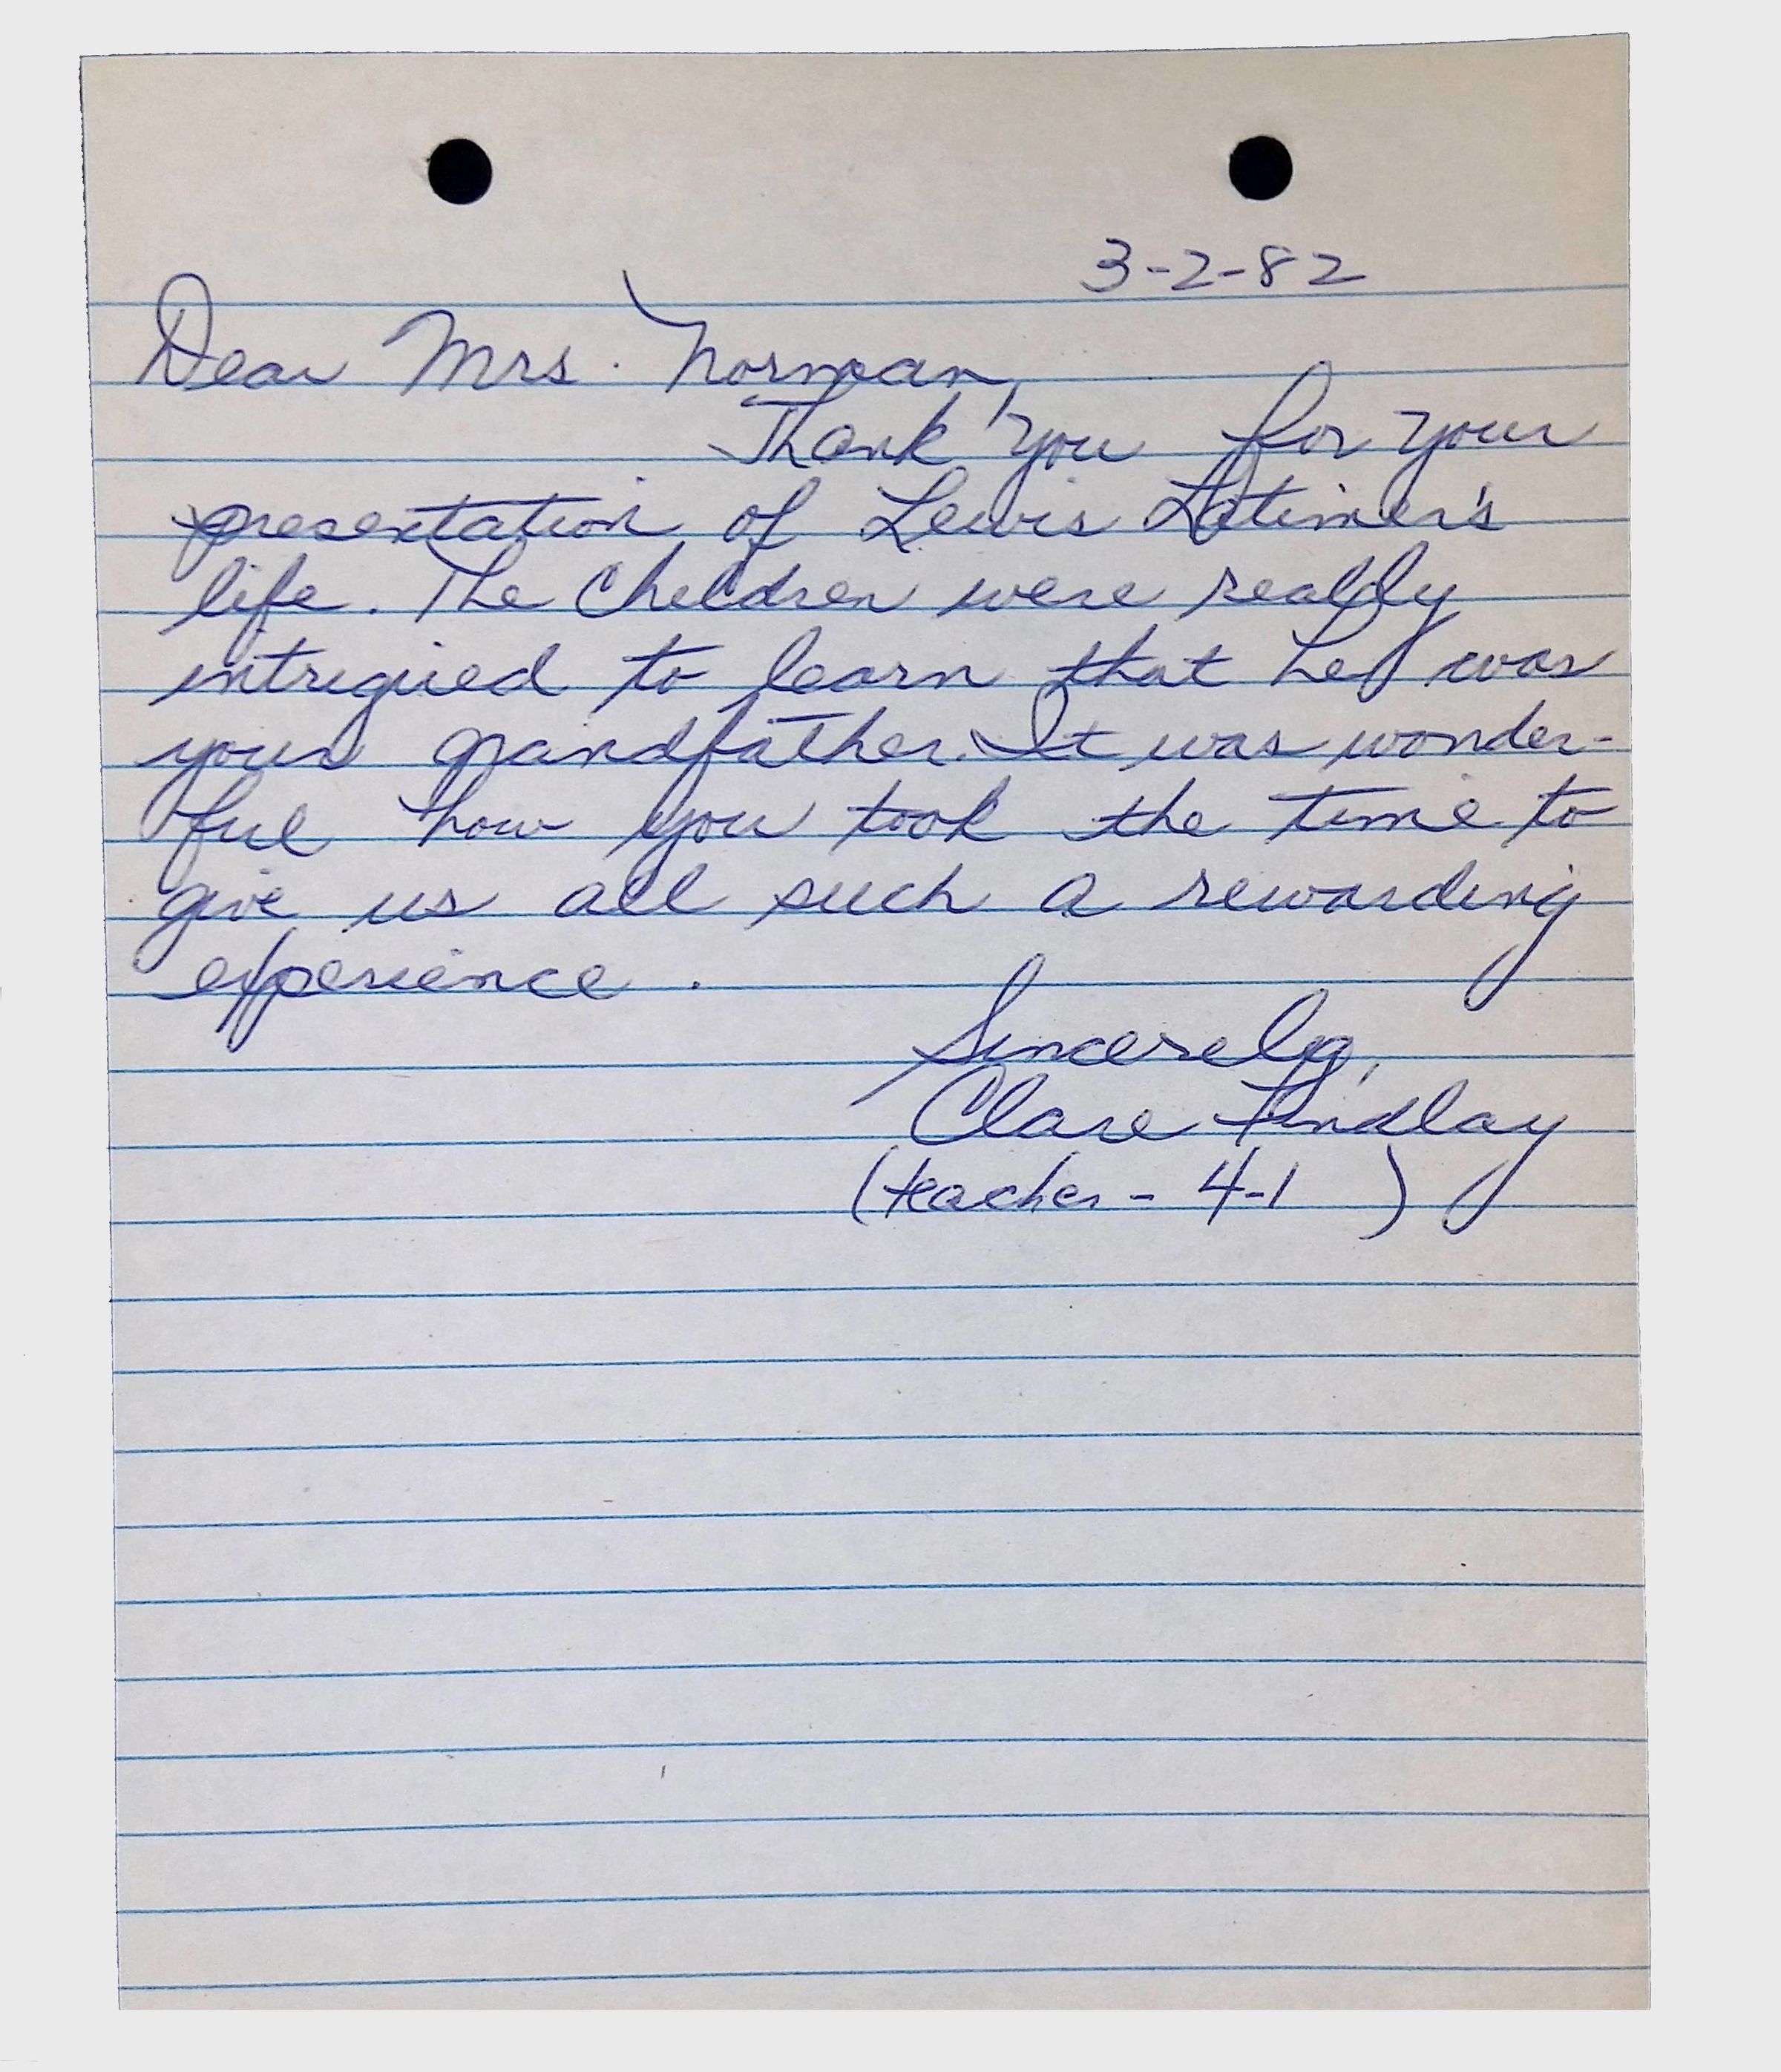 3-2-82
Dear Mrs. Norman,
Thank you for your
presentation of Lewis Latimer's
life. The children were really
intrigued to learn that he was
your grandfather. It was wonder-
ful how you took the time to
give us all such a rewarding
experience.
Sincerely,
Clare Findlay
(teacher - 4-1 )